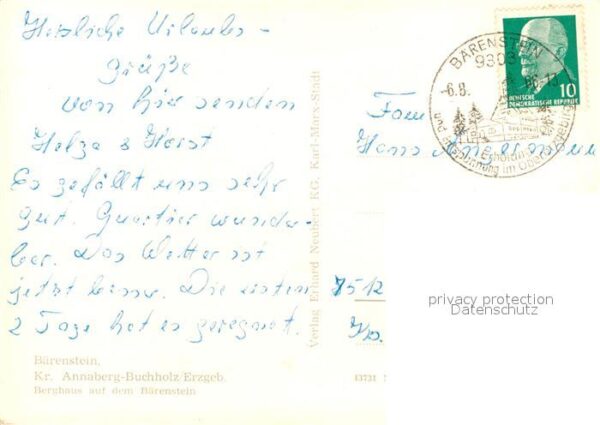 Herzliche Urlaubs-
grüße
von hier senden
Helga & Horst
Es gefällt uns sehr
gut. Quartier wunder-
bar. Das Wetter ist
jetzt besser. Die ersten
2 Tage hat es geregnet.
Bärenstein,
Kr. Annaberg-Buchholz/Erzgeb.
Berghaus auf dem Bärenstein
Verlag Erhard Neubert KG, Karl-Marx-Stadt
BÄRENSTEIN
-6.8.
Erholung
und Entspannung im Ober
10
DEUTSCHE
DEMOKRATISCHE REPUBLIK
Fam
Hans
7512
privacy protection
Datenschutz